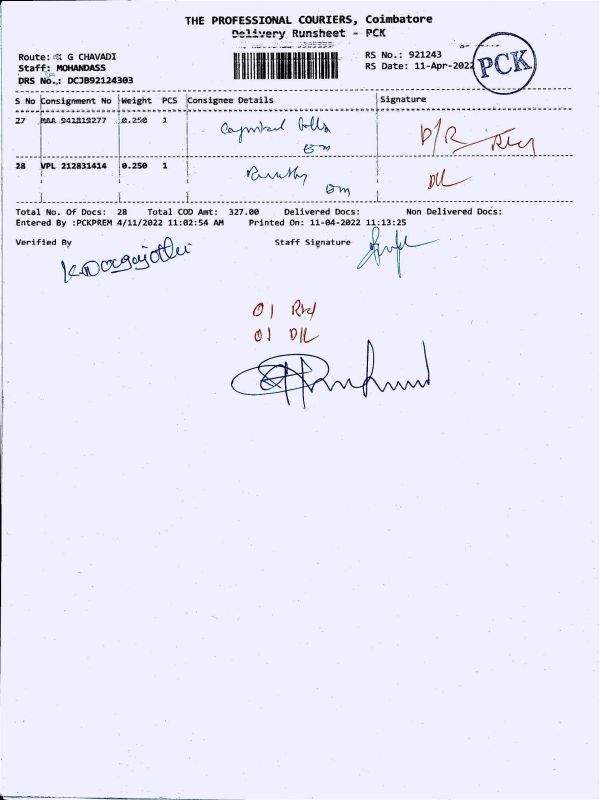 THE PROFESSIONAL COURIERS, Coimbatore
Delivery Runsheet - PCK
Route: G CHAVADI
RS No.: 921243
Staff: MOHANDASS
RS Date: 11-Apr-2022
PCK
DRS No.: DCJB92124303
S No Consignment No Weight PCS Consignee Details Signature
27 MAA 941819277 0.250 1
28 VPL 212831414 0.250 1
D/L
Total No. Of Docs: 28 Total COD Amt: 327.00 Delivered Docs: Non Delivered Docs:
Entered By :PCKPREM 4/11/2022 11:02:54 AM Printed On: 11-04-2022 11:13:25
Verified By Staff Signature
01
01 D/L